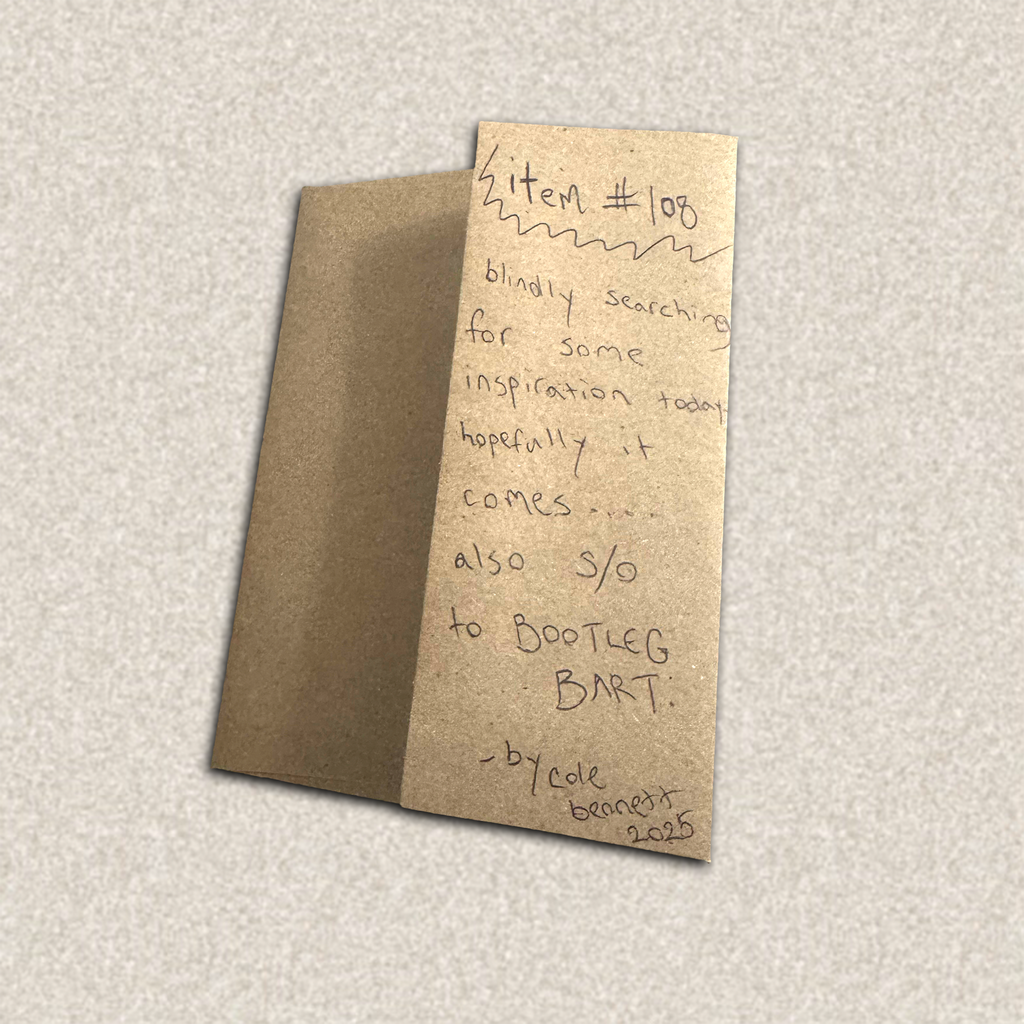 item #108
blindly searching
for some
inspiration today
hopefully it
comes.....
also s/o
to BOOTLEG
BART.
- by cole
bennett
2025